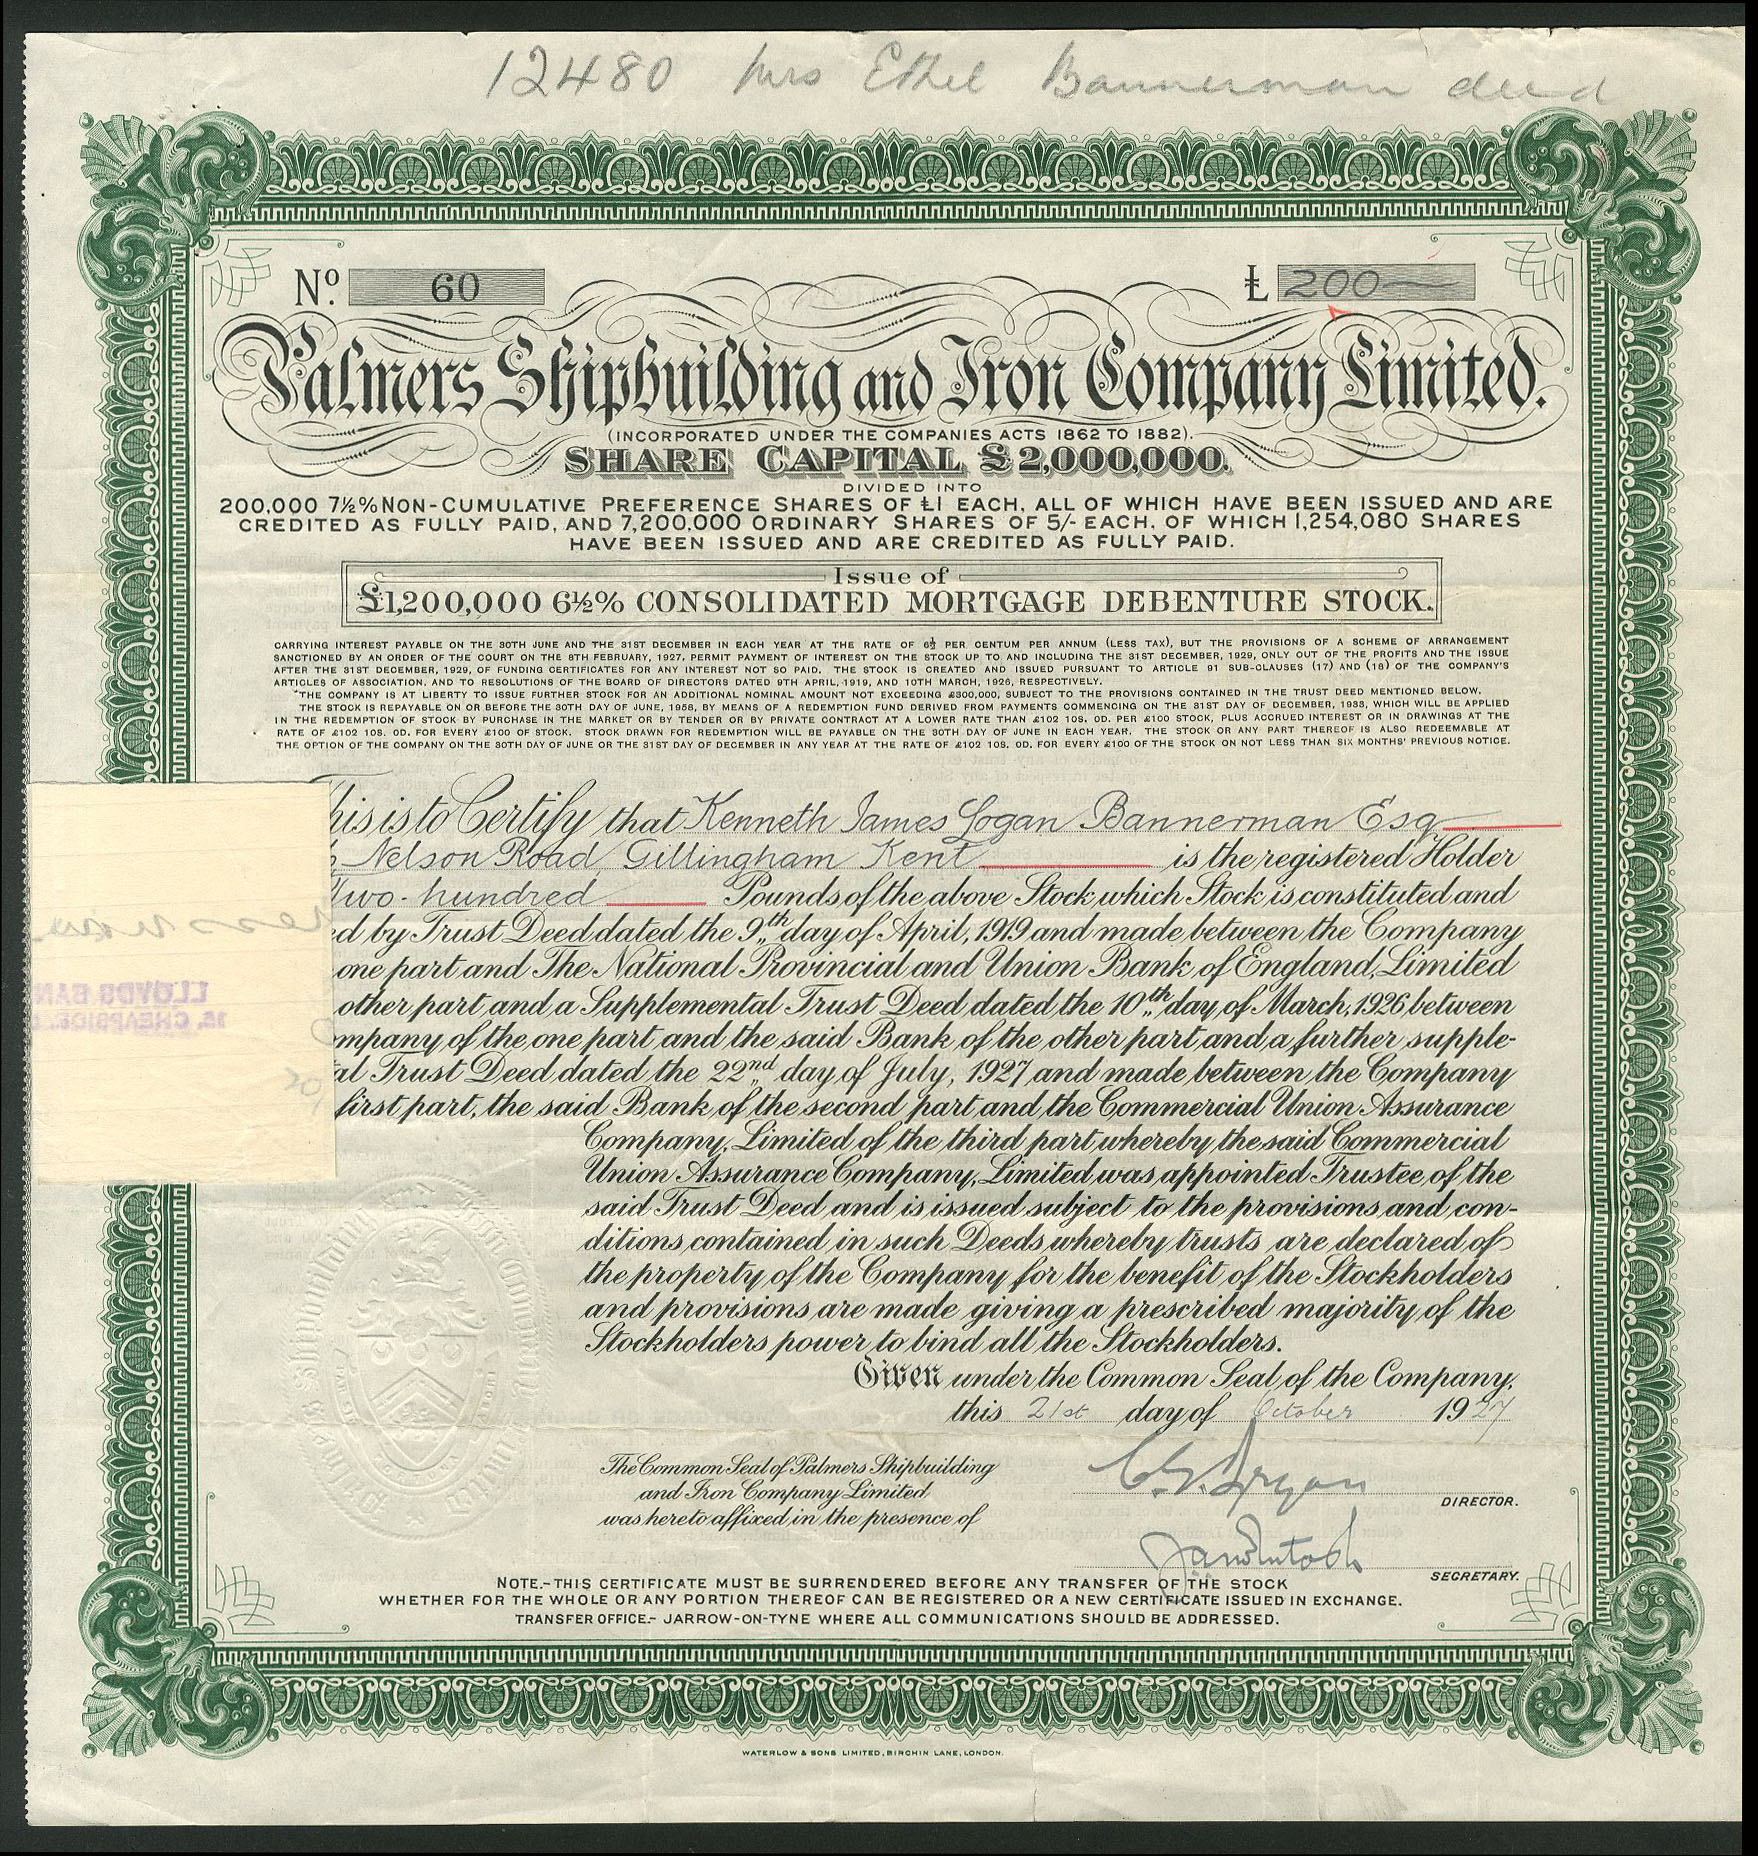 12480 Mrs Ethel Bannerman deed
No. 60 £ 200
Palmers Shipbuilding and Iron Company Limited.
(INCORPORATED UNDER THE COMPANIES ACTS 1862 TO 1882).
SHARE CAPITAL £2,000,000.
DIVIDED INTO
200,000 7½% NON-CUMULATIVE PREFERENCE SHARES OF £1 EACH, ALL OF WHICH HAVE BEEN ISSUED AND ARE
CREDITED AS FULLY PAID, AND 7,200,000 ORDINARY SHARES OF 5/- EACH, OF WHICH 1,254,080 SHARES
HAVE BEEN ISSUED AND ARE CREDITED AS FULLY PAID.
Issue of
£1,200,000 6½% CONSOLIDATED MORTGAGE DEBENTURE STOCK.
CARRYING INTEREST PAYABLE ON THE 30TH JUNE AND THE 31ST DECEMBER IN EACH YEAR AT THE RATE OF 6½ PER CENTUM PER ANNUM (LESS TAX), BUT THE PROVISIONS OF A SCHEME OF ARRANGEMENT
SANCTIONED BY AN ORDER OF THE COURT ON THE 8TH FEBRUARY, 1927, PERMIT PAYMENT OF INTEREST ON THE STOCK UP TO AND INCLUDING THE 31ST DECEMBER, 1929, ONLY OUT OF THE PROFITS AND THE ISSUE
AFTER THE 31ST DECEMBER, 1929, OF FUNDING CERTIFICATES FOR ANY INTEREST NOT SO PAID. THE STOCK IS CREATED AND ISSUED PURSUANT TO ARTICLE 91 SUB-CLAUSES (17) AND (18) OF THE COMPANY'S
ARTICLES OF ASSOCIATION, AND TO RESOLUTIONS OF THE BOARD OF DIRECTORS DATED 9TH APRIL, 1919, AND 10TH MARCH, 1926, RESPECTIVELY.
THE COMPANY IS AT LIBERTY TO ISSUE FURTHER STOCK FOR AN ADDITIONAL NOMINAL AMOUNT NOT EXCEEDING £300,000, SUBJECT TO THE PROVISIONS CONTAINED IN THE TRUST DEED MENTIONED BELOW.
THE STOCK IS REPAYABLE ON OR BEFORE THE 30TH DAY OF JUNE, 1958, BY MEANS OF A REDEMPTION FUND DERIVED FROM PAYMENTS COMMENCING ON THE 31ST DAY OF DECEMBER, 1933, WHICH WILL BE APPLIED
IN THE REDEMPTION OF STOCK BY PURCHASE IN THE MARKET OR BY TENDER OR BY PRIVATE CONTRACT AT A LOWER RATE THAN £102 10S. 0D. PER £100 STOCK, PLUS ACCRUED INTEREST OR IN DRAWINGS AT THE
RATE OF £102 10S. 0D. FOR EVERY £100 OF STOCK. STOCK DRAWN FOR REDEMPTION WILL BE PAYABLE ON THE 30TH DAY OF JUNE IN EACH YEAR. THE STOCK OR ANY PART THEREOF IS ALSO REDEEMABLE AT
THE OPTION OF THE COMPANY ON THE 30TH DAY OF JUNE OR THE 31ST DAY OF DECEMBER IN ANY YEAR AT THE RATE OF £102 10S. 0D. FOR EVERY £100 OF THE STOCK ON NOT LESS THAN SIX MONTHS' PREVIOUS NOTICE.
This is to Certify that Kenneth James Logan Bannerman Esq
Nelson Road, Gillingham Kent is the registered Holder
Two-hundred Pounds of the above Stock which Stock is constituted and
ed by Trust Deed dated the 9th day of April, 1919 and made between the Company
one part and The National Provincial and Union Bank of England, Limited
other part and a Supplemental Trust Deed dated the 10th day of March, 1926 between
mpany of the one part and the said Bank of the other part and a further supple-
al Trust Deed dated the 22nd day of July, 1927 and made between the Company
first part, the said Bank of the second part and the Commercial Union Assurance
Company, Limited of the third part whereby the said Commercial
Union Assurance Company, Limited was appointed Trustee of the
said Trust Deed and is issued subject to the provisions and con-
ditions contained in such Deeds whereby trusts are declared of
the property of the Company for the benefit of the Stockholders
and provisions are made giving a prescribed majority of the
Stockholders power to bind all the Stockholders.
Given under the Common Seal of the Company,
this 21st day of October 1927
The Common Seal of Palmers Shipbuilding
and Iron Company Limited
was hereto affixed in the presence of
DIRECTOR.
SECRETARY.
NOTE.-THIS CERTIFICATE MUST BE SURRENDERED BEFORE ANY TRANSFER OF THE STOCK
WHETHER FOR THE WHOLE OR ANY PORTION THEREOF CAN BE REGISTERED OR A NEW CERTIFICATE ISSUED IN EXCHANGE.
TRANSFER OFFICE.- JARROW-ON-TYNE WHERE ALL COMMUNICATIONS SHOULD BE ADDRESSED.
WATERLOW & SONS LIMITED, BIRCHIN LANE, LONDON.
LLOYDS BAN
15, CHEAPSIDE,